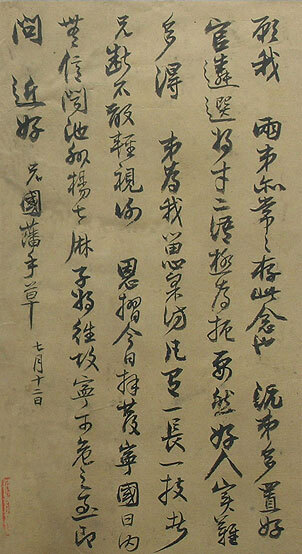 願我 兩弟亦常々存此念也 沅弟多置好
官遴選將才二語極為扼要然好人實難
多得 弟為我留心采訪凡有一長一技者
兄斷不敢輕視謝 恩摺今日拜發寧國日內
無信聞池州楊七麻子將往攻寧可危之至即
問近好 兄國藩手草
七月十二日